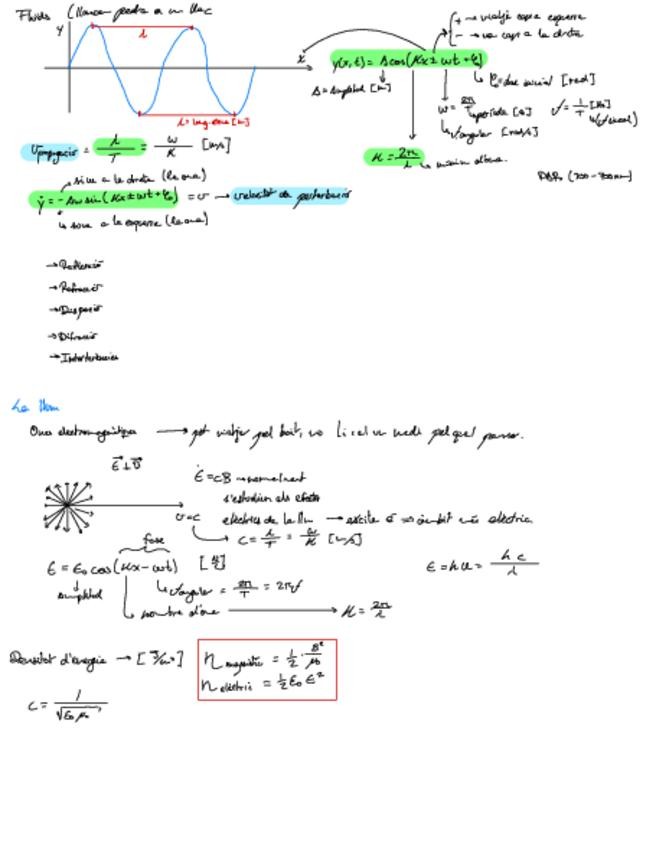 Fluids (llançar pedra a un llac
y
λ
x
λ = long. ona [m]
+ → viatja cap a esquerra
- → va cap a la dreta
y(x,t) = A cos(Kx ± ωt + φ₀)
A = amplitud [m]
φ₀ = fase inicial [rad]
ω = 2π/T
període [s]
f = 1/T [Hz]
V angular [rad/s]
K = 2π/λ
v propagació = λ/T = ω/K [m/s]
si va a la dreta (la ona)
ẏ = -Aω sin(Kx ± ωt + φ₀) = v → velocitat de pertorbació
si va a la esquerra (la ona)
→ Reflexió
→ Refracció
→ Dispersió
→ Difracció
→ Interferències
La llum
Ones electromagnètiques → pot viatjar pel buit, no li cal un medi pel qual passar.
v = c
E = cB → normalment
s'estudien els efectes
elèctrics de la llum → excita e⁻ ⇒ àmbit més elèctric
c = λ/T = ω/K [m/s]
fase
E = E₀ cos(Kx - ωt)
amplitud
V angular = 2π/T = 2πf
nombre d'ona → K = 2π/λ
E = hν = hc/λ
Densitat d'energia → [J/m³]
η magnètic = 1/2 · B²/μ₀
η elèctric = 1/2 ε₀ E²
c = 1/√(ε₀ μ₀)